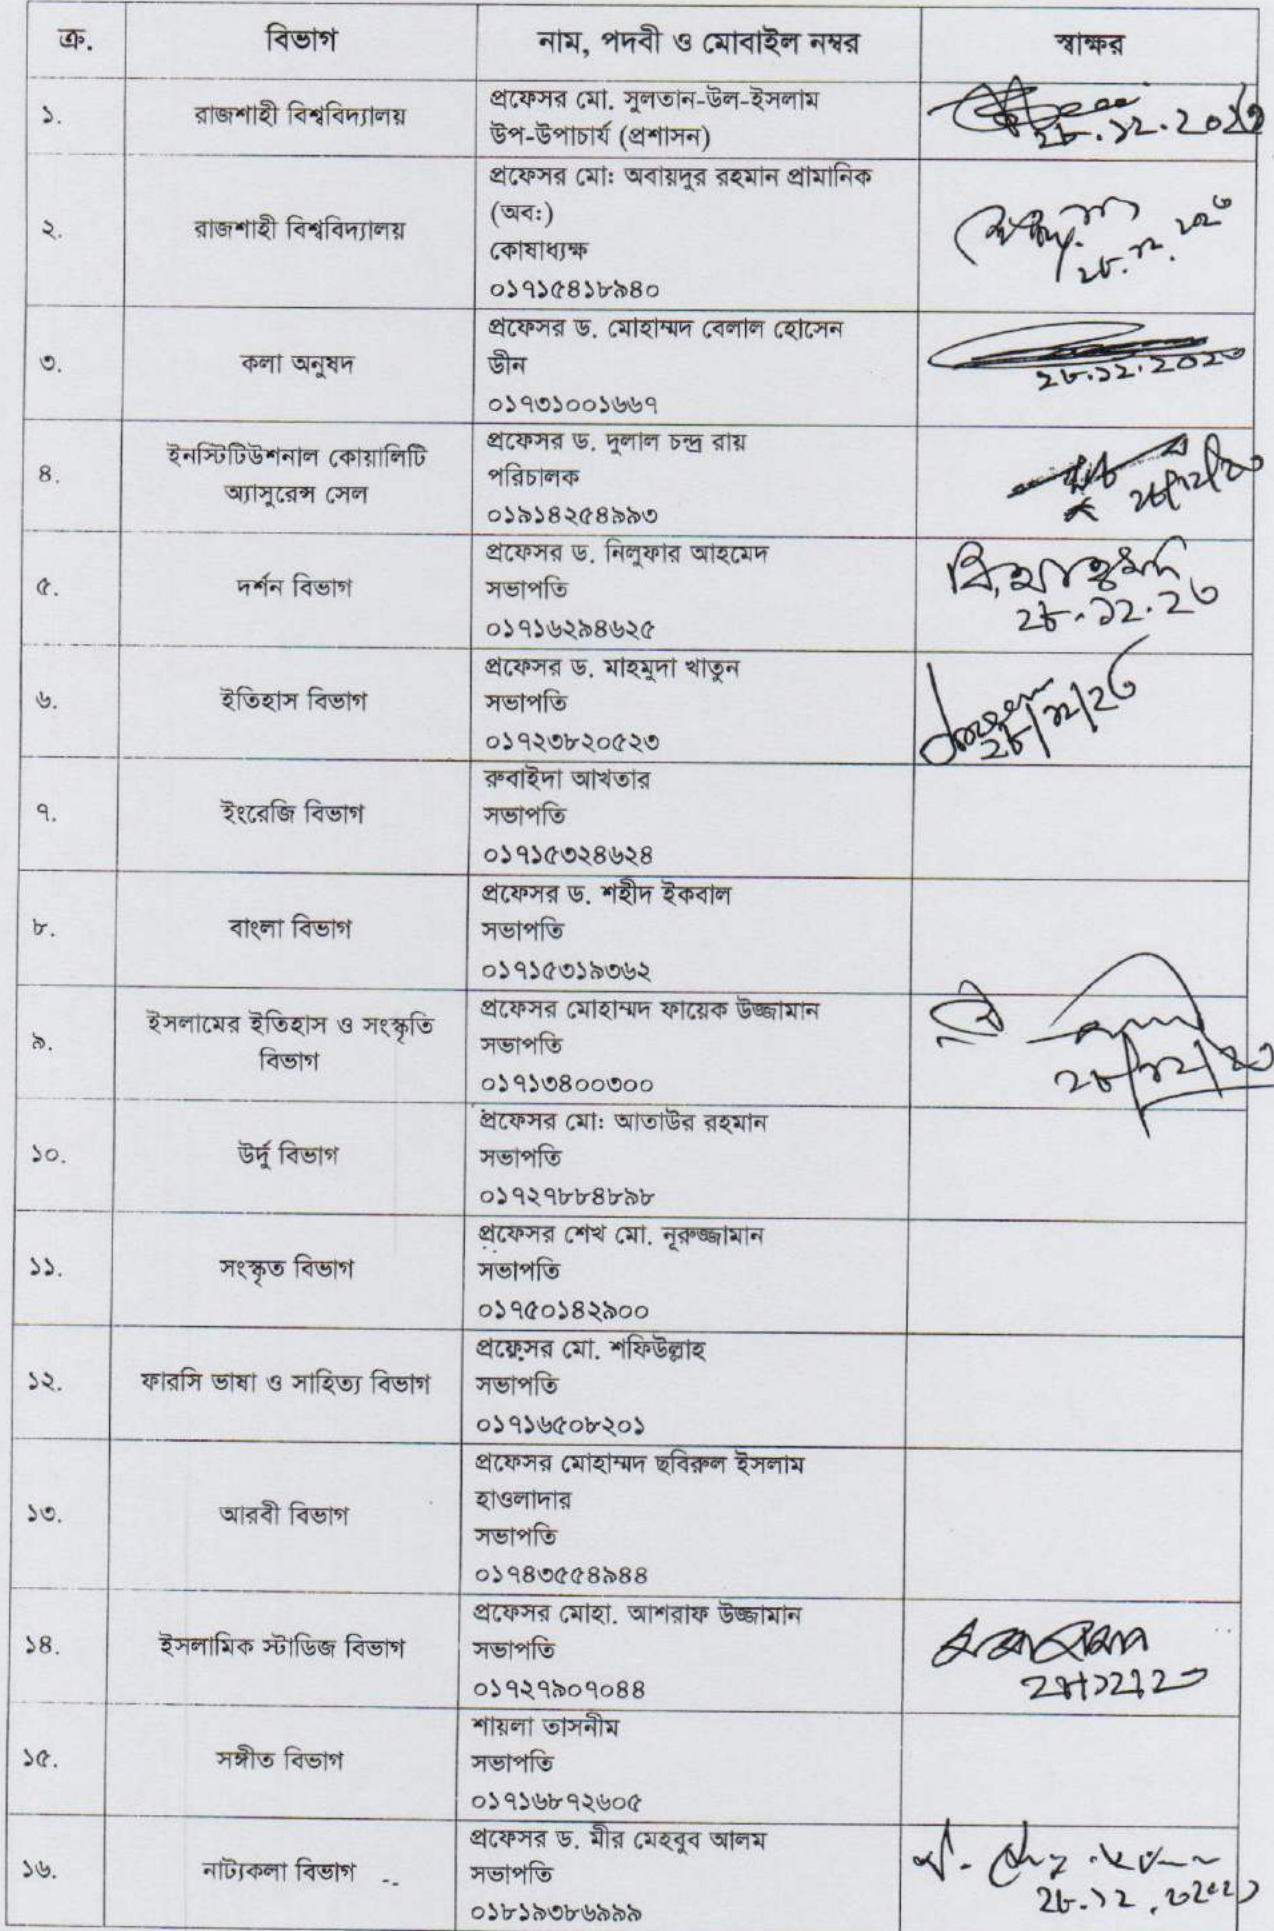 ক্র. বিভাগ নাম, পদবী ও মোবাইল নম্বর স্বাক্ষর
১. রাজশাহী বিশ্ববিদ্যালয় প্রফেসর মো. সুলতান-উল-ইসলাম
উপ-উপাচার্য (প্রশাসন)
২৮.১২.২০২৩
২. রাজশাহী বিশ্ববিদ্যালয় প্রফেসর মো: অবায়দুর রহমান প্রামানিক
(অব:)
কোষাধ্যক্ষ
০১৭১৫৪১৮৯৪০
২৮.১২.২০২৩
৩. কলা অনুষদ প্রফেসর ড. মোহাম্মদ বেলাল হোসেন
ডীন
০১৭৩১০০১৬৬৭
২৮.১২.২০২৩
৪. ইনস্টিটিউশনাল কোয়ালিটি
অ্যাসুরেন্স সেল
প্রফেসর ড. দুলাল চন্দ্র রায়
পরিচালক
০১৯১৪২৫৪৯৯৩
২৮/১২/২৩
৫. দর্শন বিভাগ প্রফেসর ড. নিলুফার আহমেদ
সভাপতি
০১৭১৬২৯৪৬২৫
২৮.১২.২৩
৬. ইতিহাস বিভাগ প্রফেসর ড. মাহমুদা খাতুন
সভাপতি
০১৭২৩৮২০৫২৩
২৮/১২/২৩
৭. ইংরেজি বিভাগ রুবাইদা আখতার
সভাপতি
০১৭১৫৩২৪৬২৪
৮. বাংলা বিভাগ প্রফেসর ড. শহীদ ইকবাল
সভাপতি
০১৭১৫৩১৯৩৬২
৯. ইসলামের ইতিহাস ও সংস্কৃতি
বিভাগ
প্রফেসর মোহাম্মদ ফায়েক উজ্জামান
সভাপতি
০১৭১৩৪০০৩০০
২৮/১২/২৩
১০. উর্দু বিভাগ প্রফেসর মো: আতাউর রহমান
সভাপতি
০১৭২৭৮৮৪৮৯৮
১১. সংস্কৃত বিভাগ প্রফেসর শেখ মো. নূরুজ্জামান
সভাপতি
০১৭৫০১৪২৯০০
১২. ফারসি ভাষা ও সাহিত্য বিভাগ প্রফেসর মো. শফিউল্লাহ
সভাপতি
০১৭১৬৫০৮২০১
১৩. আরবী বিভাগ প্রফেসর মোহাম্মদ ছবিরুল ইসলাম
হাওলাদার
সভাপতি
০১৭৪৩৫৫৪৯৪৪
১৪. ইসলামিক স্টাডিজ বিভাগ প্রফেসর মোহা. আশরাফ উজ্জামান
সভাপতি
০১৭২৭৯০৭০৪৪
২৮।১২।২৩
১৫. সঙ্গীত বিভাগ শায়লা তাসনীম
সভাপতি
০১৭১৬৮৭২৬০৫
১৬. নাট্যকলা বিভাগ প্রফেসর ড. মীর মেহবুব আলম
সভাপতি
০১৮১৯৩৮৬৯৯৯
২৮.১২.২০২৩